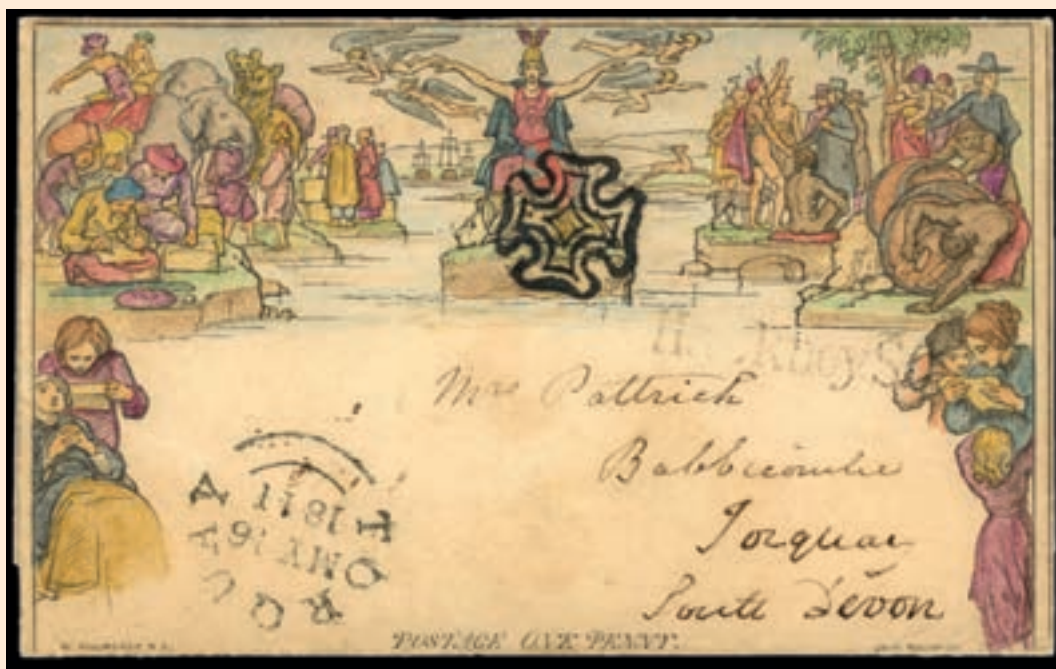 Mrs Pattrick
Babbicombe
Torquay
South Devon
TORQUAY
POSTAGE ONE PENNY.